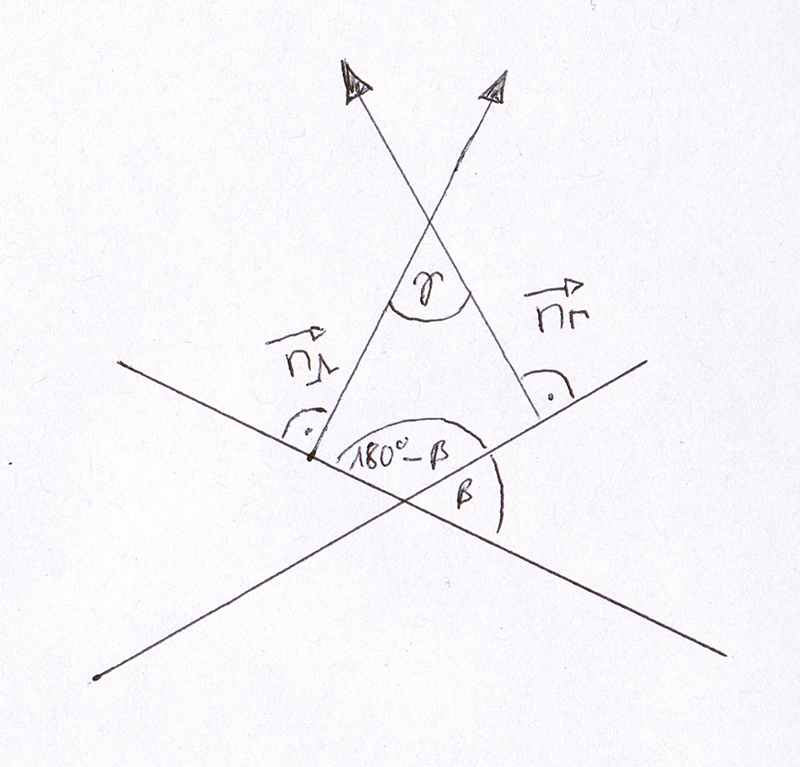 γ
n⃗₁
180°-β
β